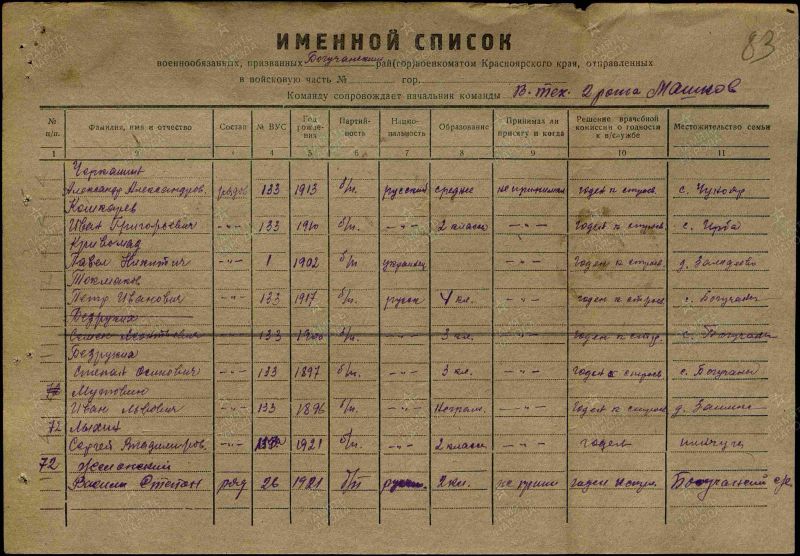 83
ИМЕННОЙ СПИСОК
военнообязанных, призванных Богучанским рай(гор)военкоматом Красноярского края, отправленных
в войсковую часть № гор.
Команду сопровождает начальник команды В. тех. 2 ранга Машков
№ п/п. Фамилия, имя и отчество Состав № ВУС Год рождения Партийность Национальность Образование Принимал ли присягу и когда Решение врачебной комиссии о годности к в/службе Местожительство семьи
1 2 3 4 5 6 7 8 9 10 11
Александр Александров. рядов 133 1913 б/п. русский среднее не принимал годен к строев. с.
Кошкарев
Иван Григорьевич -"- 133 1910 б/п. -"- 2 класса -"- годен к строев. с. Ирба
Кривомаз
Павел Никитич -"- 1 1902 б/п. украинец -"- годен к строев. д.
Токмаков
Петр Иванович -"- 133 1917 б/п. русск 4 кл. -"- годен к строев с. Богучаны
Безруких
Семен Леонтьевич -"- 133 1906 б/п. -"- 3 кл. -"- годен к стр. с. Богучаны
Безруких
Степан Осипович -"- 133 1897 б/п. -"- 3 кл. -"- годен к строев. с. Богучаны
Мутовин
Иван Львович -"- 133 1896 б/п. -"- неграм. -"- годен к строев д.
72 Лыхин
Сергей Владимиров. -"- 1921 б/п. -"- 2 класса -"- годен пинчуга
72
Василий Степан ряд 26 1921 б/п русск. 2 кл. не прини годен к стр. Богучанский с/с